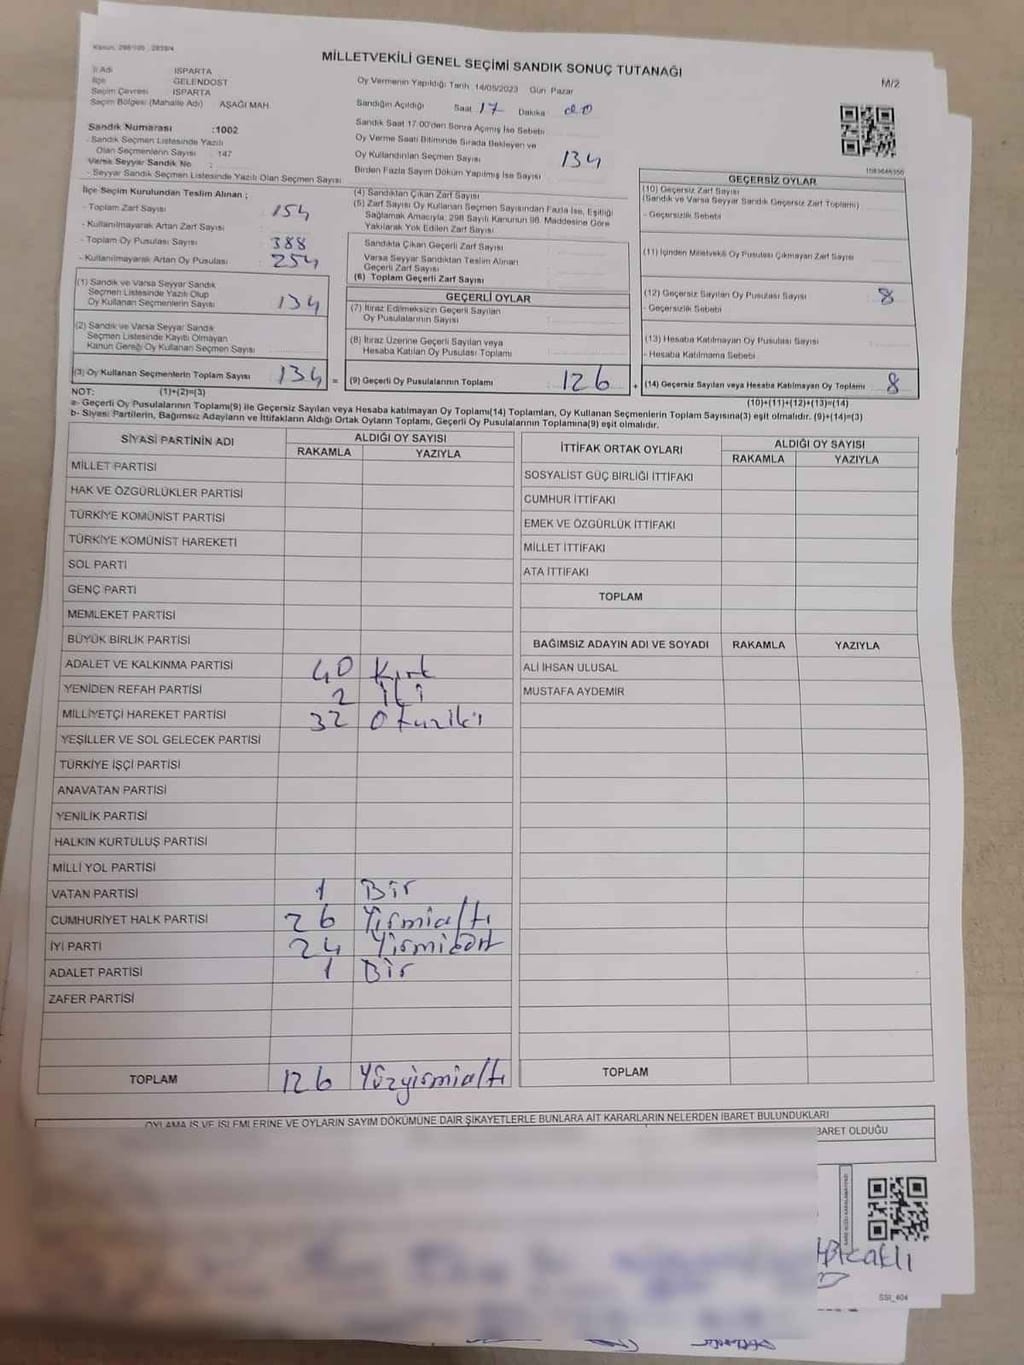 Kanun, 298/105 , 2839/4
MİLLETVEKİLİ GENEL SEÇİMİ SANDIK SONUÇ TUTANAĞI
M/2
İl Adı ISPARTA
İlçe GELENDOST
Seçim Çevresi ISPARTA
Seçim Bölgesi (Mahalle Adı) AŞAĞI MAH.
Sandık Numarası :1002
- Sandık Seçmen Listesinde Yazılı
Olan Seçmenlerin Sayısı : 147
Varsa Seyyar Sandık No :
- Seyyar Sandık Seçmen Listesinde Yazılı Olan Seçmen Sayısı
Oy Vermenin Yapıldığı Tarih 14/05/2023 Gün Pazar
Sandığın Açıldığı Saat 17 Dakika 00
Sandık Saat 17:00'den Sonra Açımış İse Sebebi
Oy Verme Saati Bitiminde Sırada Bekleyen ve
Oy Kullandırılan Seçmen Sayısı 134
Birden Fazla Sayım Döküm Yapılmış İse Sayısı
İlçe Seçim Kurulundan Teslim Alınan ;
- Toplam Zarf Sayısı 154
- Kullanılmayarak Artan Zarf Sayısı
- Toplam Oy Pusulası Sayısı 388
- Kullanılmayarak Artan Oy Pusulası 254
(1) Sandık ve Varsa Seyyar Sandık
Seçmen Listesinde Yazılı Olup
Oy Kullanan Seçmenlerin Sayısı 134
(2) Sandık ve Varsa Seyyar Sandık
Seçmen Listesinde Kayıtlı Olmayan
Kanun Gereği Oy Kullanan Seçmen Sayısı
(3) Oy Kullanan Seçmenlerin Toplam Sayısı 134 =
(4) Sandıktan Çıkan Zarf Sayısı
(5) Zarf Sayısı Oy Kullanan Seçmen Sayısından Fazla İse, Eşitliği
Sağlamak Amacıyla; 298 Sayılı Kanunun 98. Maddesine Göre
Yakılarak Yok Edilen Zarf Sayısı
Sandıkta Çıkan Geçerli Zarf Sayısı
Varsa Seyyar Sandıktan Teslim Alınan
Geçerli Zarf Sayısı
(6) Toplam Geçerli Zarf Sayısı
GEÇERLİ OYLAR
(7) İtiraz Edilmeksizin Geçerli Sayılan
Oy Pusulalarının Sayısı
(8) İtiraz Üzerine Geçerli Sayılan veya
Hesaba Katılan Oy Pusulası Toplamı
(9) Geçerli Oy Pusulalarının Toplamı 126 +
1583646356
GEÇERSİZ OYLAR
(10) Geçersiz Zarf Sayısı
(Sandık ve Varsa Seyyar Sandık Geçersiz Zarf Toplamı)
- Geçersizlik Sebebi
(11) İçinden Milletvekili Oy Pusulası Çıkmayan Zarf Sayısı
(12) Geçersiz Sayılan Oy Pusulası Sayısı 8
- Geçersizlik Sebebi
(13) Hesaba Katılmayan Oy Pusulası Sayısı
- Hesaba Katılmama Sebebi
(14) Geçersiz Sayılan veya Hesaba Katılmayan Oy Toplamı 8
NOT: (1)+(2)=(3) (10)+(11)+(12)+(13)=(14)
a- Geçerli Oy Pusulalarının Toplamı(9) ile Geçersiz Sayılan veya Hesaba katılmayan Oy Toplamı(14) Toplamları, Oy Kullanan Seçmenlerin Toplam Sayısına(3) eşit olmalıdır. (9)+(14)=(3)
b- Siyasi Partilerin, Bağımsız Adayların ve İttifakların Aldığı Ortak Oyların Toplamı, Geçerli Oy Pusulalarının Toplamına(9) eşit olmalıdır.
SİYASİ PARTİNİN ADI ALDIĞI OY SAYISI
RAKAMLA YAZIYLA
MİLLET PARTİSİ
HAK VE ÖZGÜRLÜKLER PARTİSİ
TÜRKİYE KOMÜNİST PARTİSİ
TÜRKİYE KOMÜNİST HAREKETİ
SOL PARTİ
GENÇ PARTİ
MEMLEKET PARTİSİ
BÜYÜK BİRLİK PARTİSİ
ADALET VE KALKINMA PARTİSİ 40 Kırk
YENİDEN REFAH PARTİSİ 2 İki
MİLLİYETÇİ HAREKET PARTİSİ 32 Otuziki
YEŞİLLER VE SOL GELECEK PARTİSİ
TÜRKİYE İŞÇİ PARTİSİ
ANAVATAN PARTİSİ
YENİLİK PARTİSİ
HALKIN KURTULUŞ PARTİSİ
MİLLİ YOL PARTİSİ
VATAN PARTİSİ 1 Bir
CUMHURİYET HALK PARTİSİ 26 Yirmialtı
İYİ PARTİ 24 Yirmidört
ADALET PARTİSİ 1 Bir
ZAFER PARTİSİ
TOPLAM 126 Yüzyirmialtı
İTTİFAK ORTAK OYLARI ALDIĞI OY SAYISI
RAKAMLA YAZIYLA
SOSYALİST GÜÇ BİRLİĞİ İTTİFAKI
CUMHUR İTTİFAKI
EMEK VE ÖZGÜRLÜK İTTİFAKI
MİLLET İTTİFAKI
ATA İTTİFAKI
TOPLAM
BAĞIMSIZ ADAYIN ADI VE SOYADI RAKAMLA YAZIYLA
ALİ İHSAN ULUSAL
MUSTAFA AYDEMİR
TOPLAM
OYLAMA İŞ VE İŞLEMLERİNE VE OYLARIN SAYIM DÖKÜMÜNE DAİR ŞİKAYETLERLE BUNLARA AİT KARARLARIN NELERDEN İBARET BULUNDUKLARI
BARET OLDUĞU
SSI_404